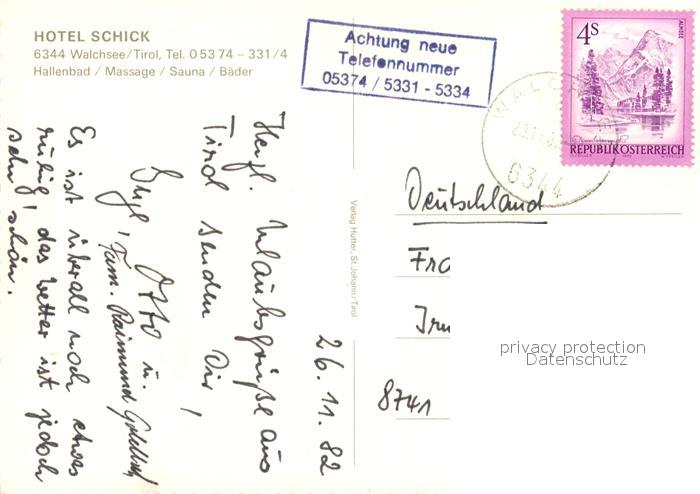 HOTEL SCHICK
6344 Walchsee/Tirol, Tel. 05374 – 331/4
Hallenbad / Massage / Sauna / Bäder
Achtung neue
Telefonnummer
05374 / 5331 - 5334
4S
ALMSEE
REPUBLIK ÖSTERREICH
6344
26.11.82
Herzl. Urlaubsgrüße aus
Tirol senden Dir,
Otto u.
Fam. Raimund
Es ist überall noch etwas
ruhig, das Wetter ist jedoch
sehr schön.
Verlag Hutter, St. Johann/Tirol
Deutschland
Fra
8741
privacy protection
Datenschutz